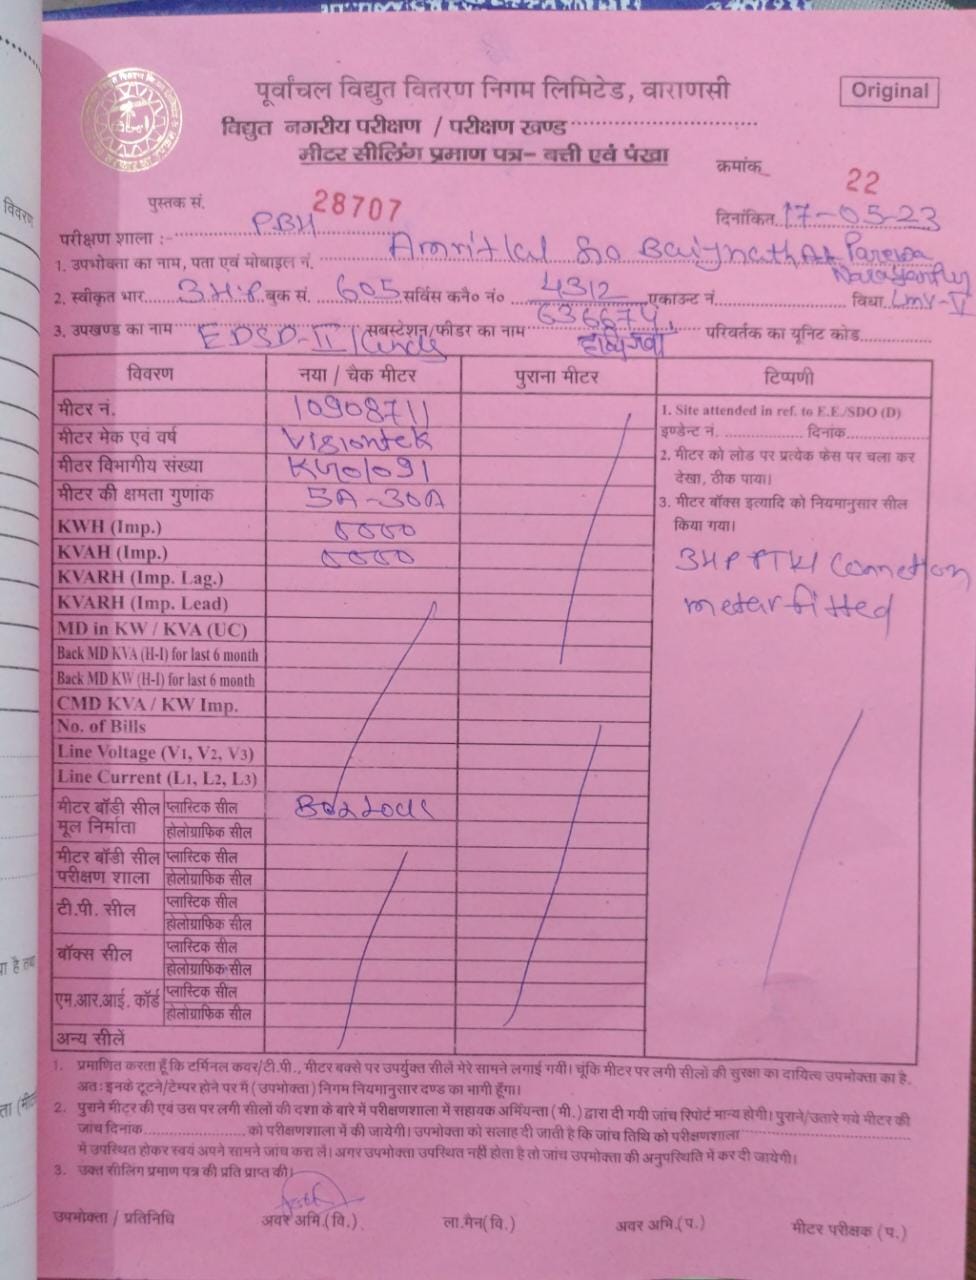 पूर्वांचल विद्युत वितरण निगम लिमिटेड, वाराणसी
Original
विद्युत नगरीय परीक्षण / परीक्षण खण्ड
मीटर सीलिंग प्रमाण पत्र- बत्ती एवं पंखा
क्रमांक 22
पुस्तक सं. 28707
दिनांकित 17-05-23
परीक्षण शाला :- PBH
1. उपभोक्ता का नाम, पता एवं मोबाइल नं. Amritlal S/o Baijnath
2. स्वीकृत भार 3H.P बुक सं. 605 सर्विस कनै० नं० 4312 एकाउन्ट नं. विधा LMV-V
636674
3. उपखण्ड का नाम EDSD-II सबस्टेशन/फीडर का नाम परिवर्तक का यूनिट कोड
विवरण नया / चैक मीटर पुराना मीटर टिप्पणी
मीटर नं. 10908711
मीटर मेक एवं वर्ष Visiontek
मीटर विभागीय संख्या
मीटर की क्षमता गुणांक 5A-30A
KWH (Imp.) 0000
KVAH (Imp.) 0000
KVARH (Imp. Lag.)
KVARH (Imp. Lead)
MD in KW / KVA (UC)
Back MD KVA (H-I) for last 6 month
Back MD KW (H-I) for last 6 month
CMD KVA / KW Imp.
No. of Bills
Line Voltage (V1, V2, V3)
Line Current (L1, L2, L3)
1. Site attended in ref. to E.E./SDO (D)
इण्डेन्ट नं. दिनांक
2. मीटर को लोड पर प्रत्येक फेस पर चला कर
देखा, ठीक पाया।
3. मीटर बॉक्स इत्यादि को नियमानुसार सील
किया गया।
3HP PTW Connection
meter fitted
मीटर बॉडी सील प्लास्टिक सील Box Lock
मूल निर्माता होलोग्राफिक सील
मीटर बॉडी सील प्लास्टिक सील
परीक्षण शाला होलोग्राफिक सील
टी.पी. सील प्लास्टिक सील
होलोग्राफिक सील
बॉक्स सील प्लास्टिक सील
होलोग्राफिक सील
एम.आर.आई. कॉर्ड प्लास्टिक सील
होलोग्राफिक सील
अन्य सीलें
1. प्रमाणित करता हूँ कि टर्मिनल कवर/टी.पी., मीटर बक्से पर उपर्युक्त सीले मेरे सामने लगाई गयीं। चूंकि मीटर पर लगी सीलों की सुरक्षा का दायित्व उपभोक्ता का है.
अतः इनके टूटने/टेम्पर होने पर मैं (उपभोक्ता) निगम नियमानुसार दण्ड का भागी हूँगा।
2. पुराने मीटर की एवं उस पर लगी सीलों की दशा के बारे में परीक्षणशाला में सहायक अभियन्ता (मी.) द्वारा दी गयी जांच रिपोर्ट मान्य होगी। पुराने/उतारे गये मीटर की
जांच दिनांक को परीक्षणशाला में की जायेगी। उपभोक्ता को सलाह दी जाती है कि जांच तिथि को परीक्षणशाला
में उपस्थित होकर स्वयं अपने सामने जांच करा लें। अगर उपभोक्ता उपस्थित नहीं होता है तो जांच उपभोक्ता की अनुपस्थिति में कर दी जायेगी।
3. उक्त सीलिंग प्रमाण पत्र की प्रति प्राप्त की।
उपभोक्ता / प्रतिनिधि अवर अभि.(वि.) ला.मैन(वि.) अवर अभि.(प.) मीटर परीक्षक (प.)